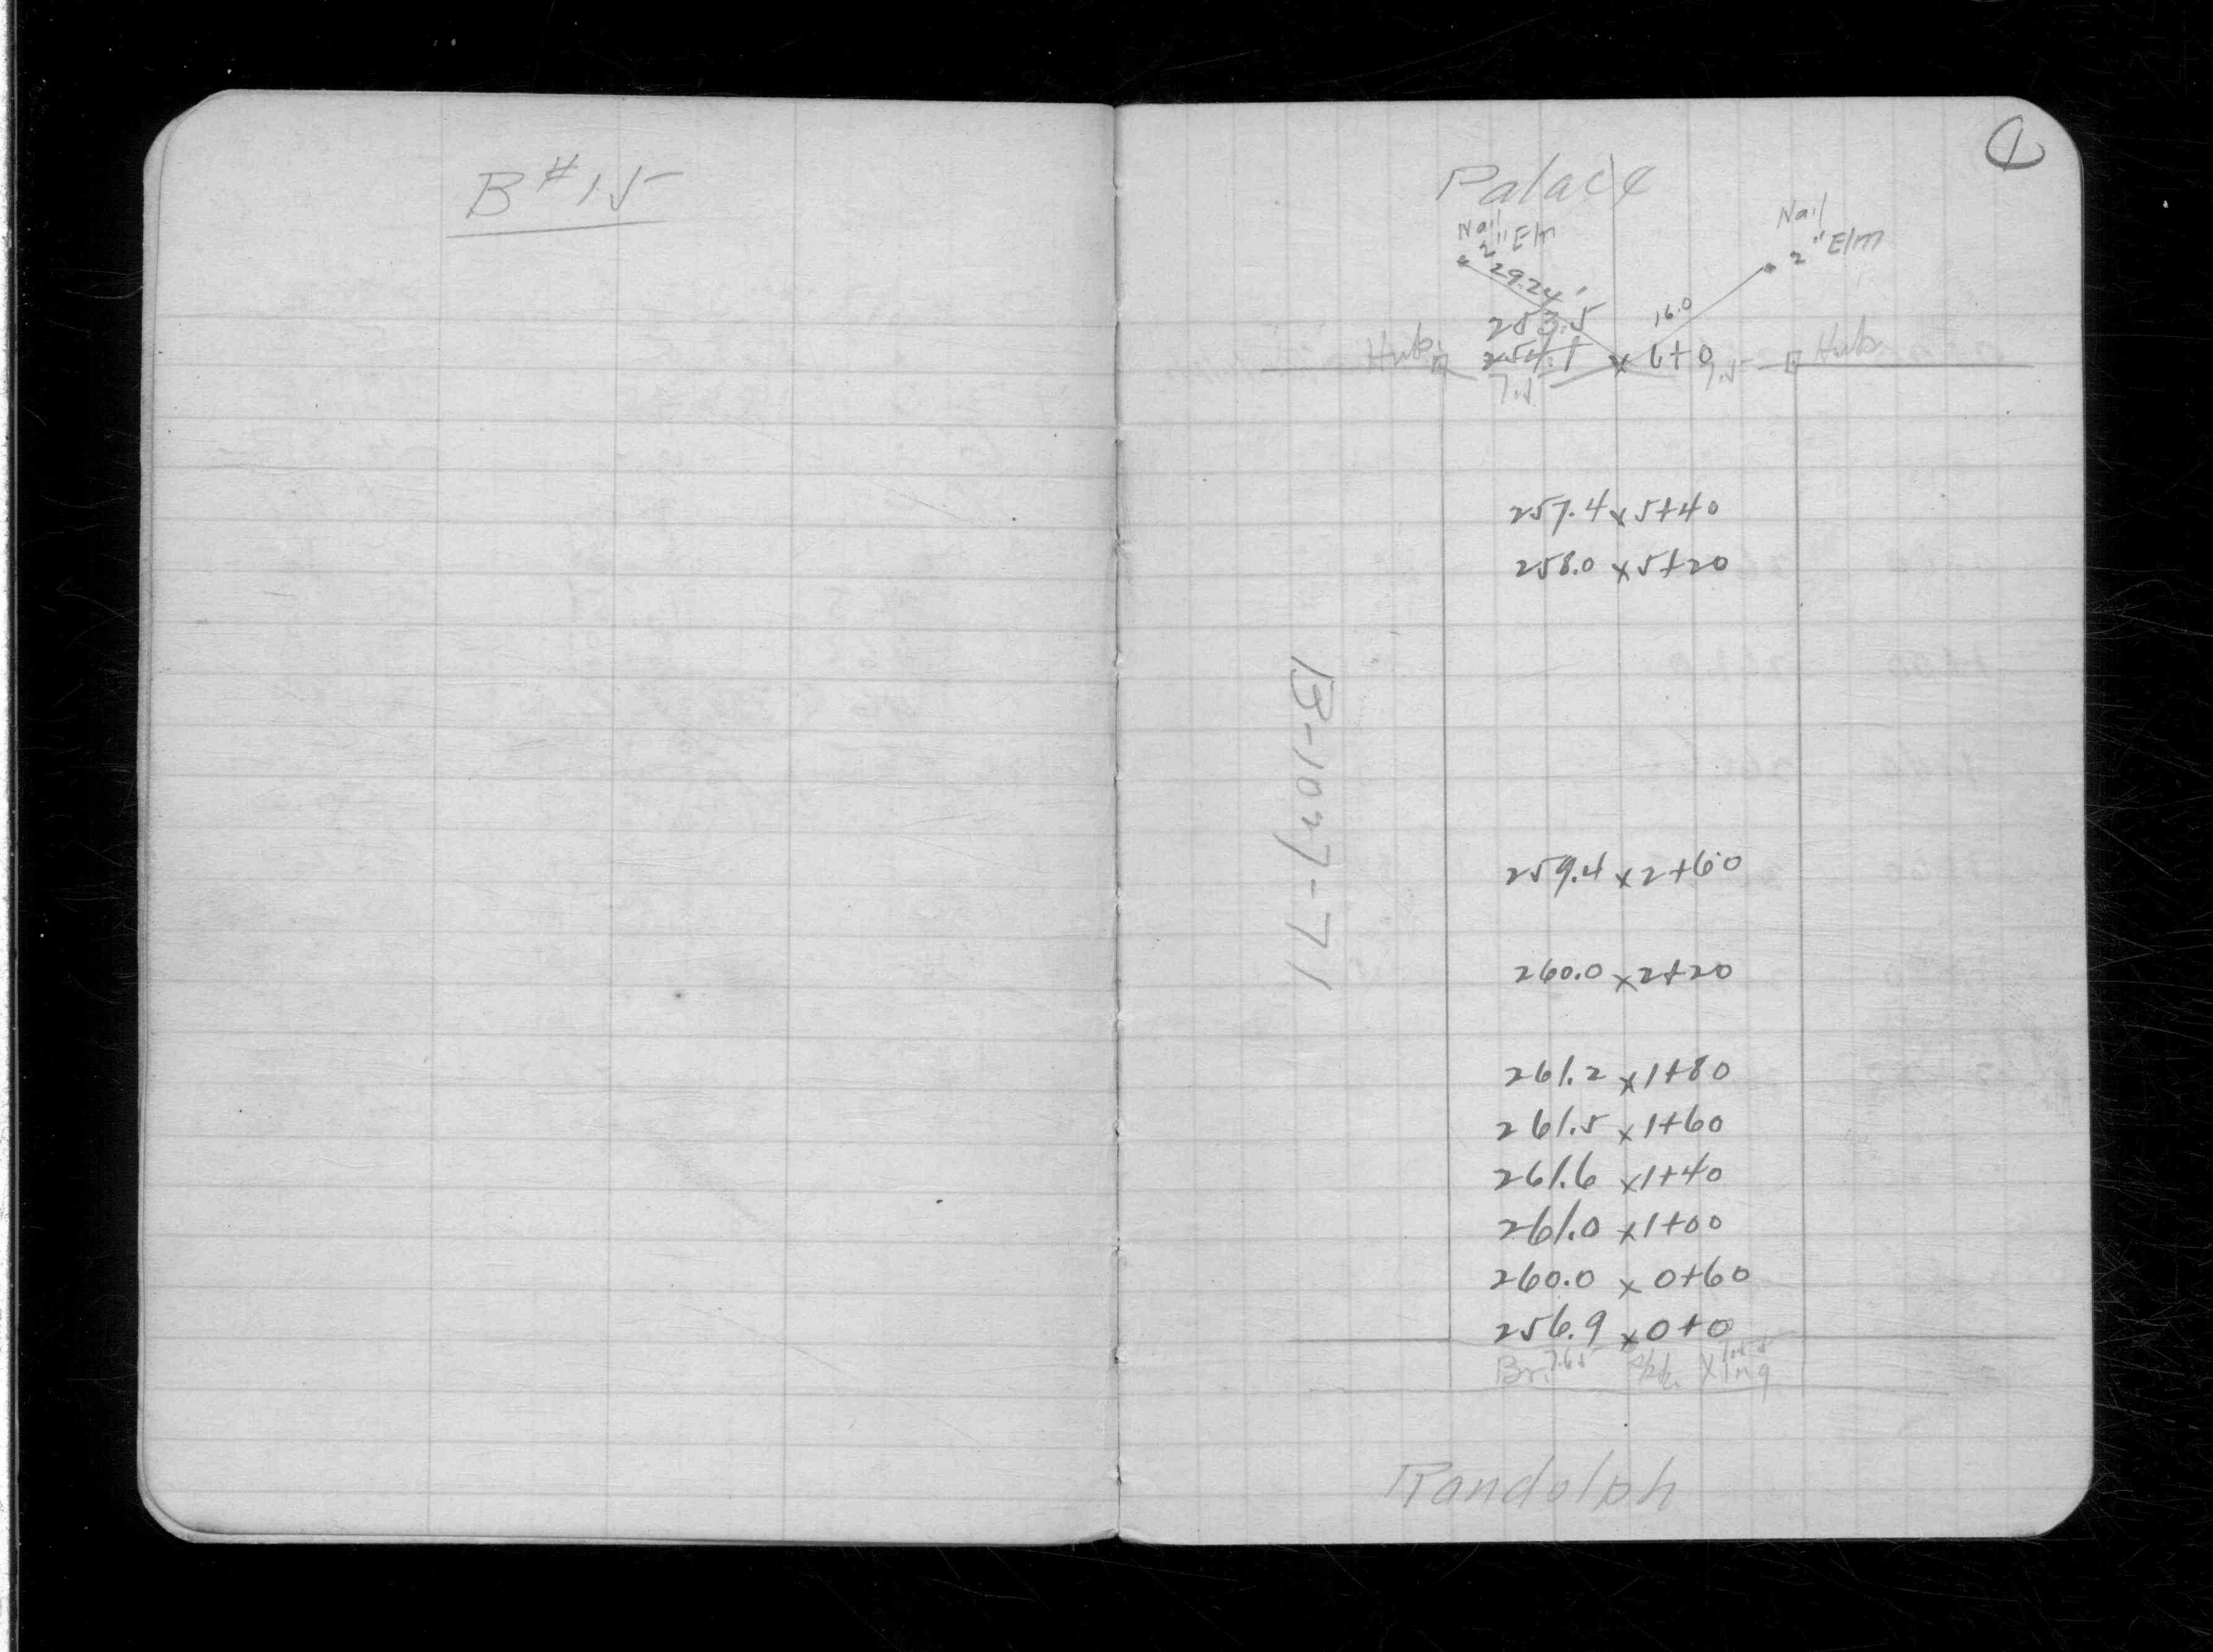 B #15
1
Palace
Nail
2" Elm
Nail
2" Elm
29.24'
16.0
253.5
Hub
254.1 x 6+0
Hub
7.5
7.5
257.4 x 5+40
258.0 x 5+20
B-1027-71
259.4 x 2+60
260.0 x 2+20
261.2 x 1+80
261.5 x 1+60
261.6 x 1+40
261.0 x 1+00
260.0 x 0+60
256.9 x 0+0
7.65
Xing
Randolph